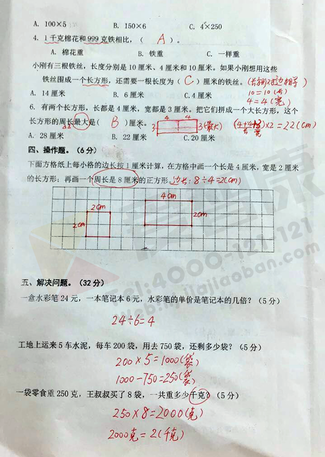 A. 100×5    B. 150×6    C. 4×250
4. 1千克棉花和999克铁相比，（ A ）。
A. 棉花重    B. 铁重    C. 一样重
小刚有三根铁丝，长度分别是10厘米、4厘米和10厘米，如果小刚想用这些
铁丝围成一个长方形，还需要一根长度为（ C ）厘米的铁丝。
A. 14厘米    B. 6厘米    C. 4厘米
10=10(长)
4=4(宽)
6. 有两个长方形，长都是4厘米，宽都是3厘米，把它们拼成一个大长方形，这个
长方形的周长最大是（ B ）厘米。
×2=22(cm)
A. 28厘米    B. 22厘米    C. 20厘米
四、操作题。（6分）
下面方格纸上每小格的边长按1厘米计算，在方格中画一个长是4厘米，宽是2厘米
的长方形；再画一个周长是8厘米的正方形。边长:8÷4=2(cm)
4cm
2cm
2cm
2cm
五、解决问题。（32分）
一盒水彩笔24元，一本笔记本6元，水彩笔的单价是笔记本的几倍？（5分）
24÷6=4
工地上运来5车水泥，每车200袋，用去750袋，还剩多少袋？（5分）
200×5=1000(袋)
1000-750=250(袋)
一袋零食重250克，王叔叔买了8袋，一共重多少千克？（5分）
250×8=2000(克)
2000克=2(千克)
4000-121-121